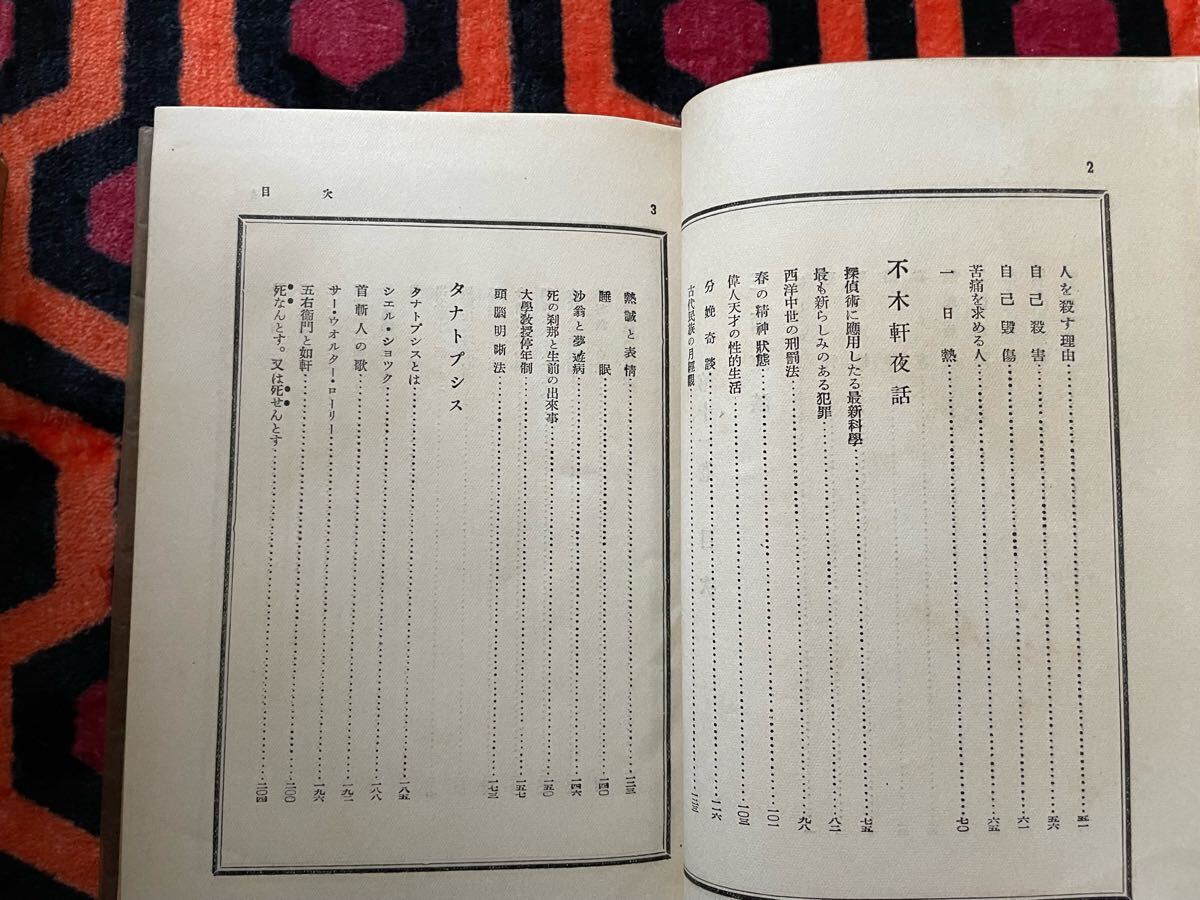 2
人を殺す理由……五一
自己殺害……五六
自己毀傷……六一
苦痛を求める人……六五
一日熱……七〇
不木軒夜話
探偵術に應用したる最新科學……七五
最も新らしみのある犯罪……八二
西洋中世の刑罰法……九八
春の精神狀態……一〇一
偉人天才の性的生活……一〇三
分娩奇談……一一六
古代民族の月經觀
3
目次
熱誠と表情……一三三
睡眠……一四〇
沙翁と夢遊病……一四六
死の刹那と生前の出來事……一五〇
大學敎授停年制……一五七
頭腦明晰法……一七三
タナトプシス
タナトプシスとは……一八五
シエル・シヨツク……一八八
首斬人の歌……一九二
サー・ウオルター・ローリー……一九六
五右衞門と如軒……二〇〇
死なんとす。又は死せんとす……二〇四